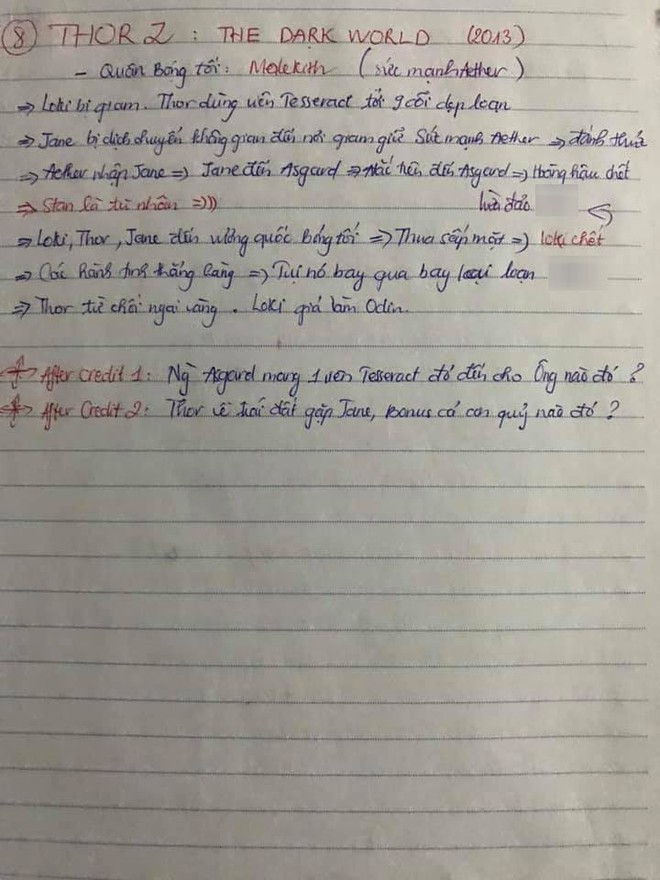 ⑧ THOR 2 : THE DARK WORLD (2013)
- Quân Bóng tối: Malekith (sức mạnh Aether)
=> Loki bị giam. Thor dùng viên Tesseract tới 9 cõi dẹp loạn
=> Jane bị dịch chuyển không gian đến nơi giam giữ Sức mạnh Aether => đánh thức
=> Aether nhập Jane => Jane đến Asgard => Hắc tiên đến Asgard => Hoàng hậu chết
=> Stan là tù nhân =)))
lừa đảo
=> Loki, Thor, Jane đến vương quốc bóng tối => Thua sấp mặt => Loki chết
=> Các hành tinh thẳng hàng => Tụi nó bay qua bay loại loạn
=> Thor từ chối ngai vàng. Loki giả làm Odin.
After Credit 1: Ng` Asgard mang 1 viên Tesseract đó đến cho Ông nào đó ?
After Credit 2: Thor về trái đất gặp Jane, Bonus cả con quỷ nào đó ?